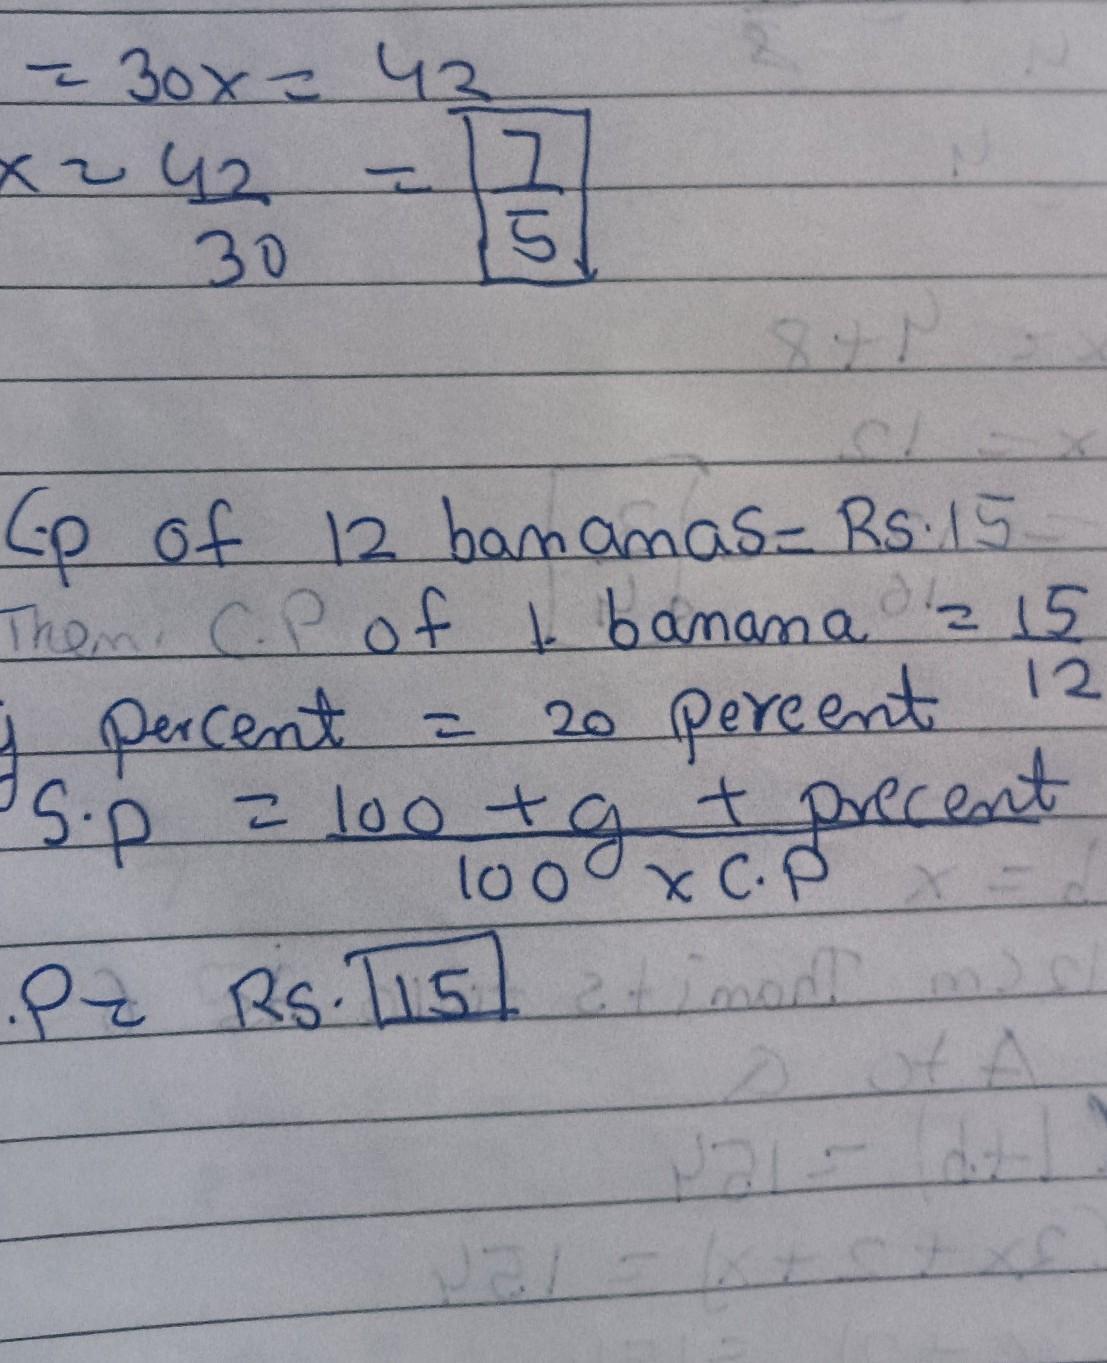 = 30x = 42
x = 42/30 = 7/5
C.p of 12 bananas = Rs. 15
Then C.P of 1 banana = 15/12
g percent = 20 percent
S.p = 100 + g + precent
100 x C.P
.P = Rs. 15